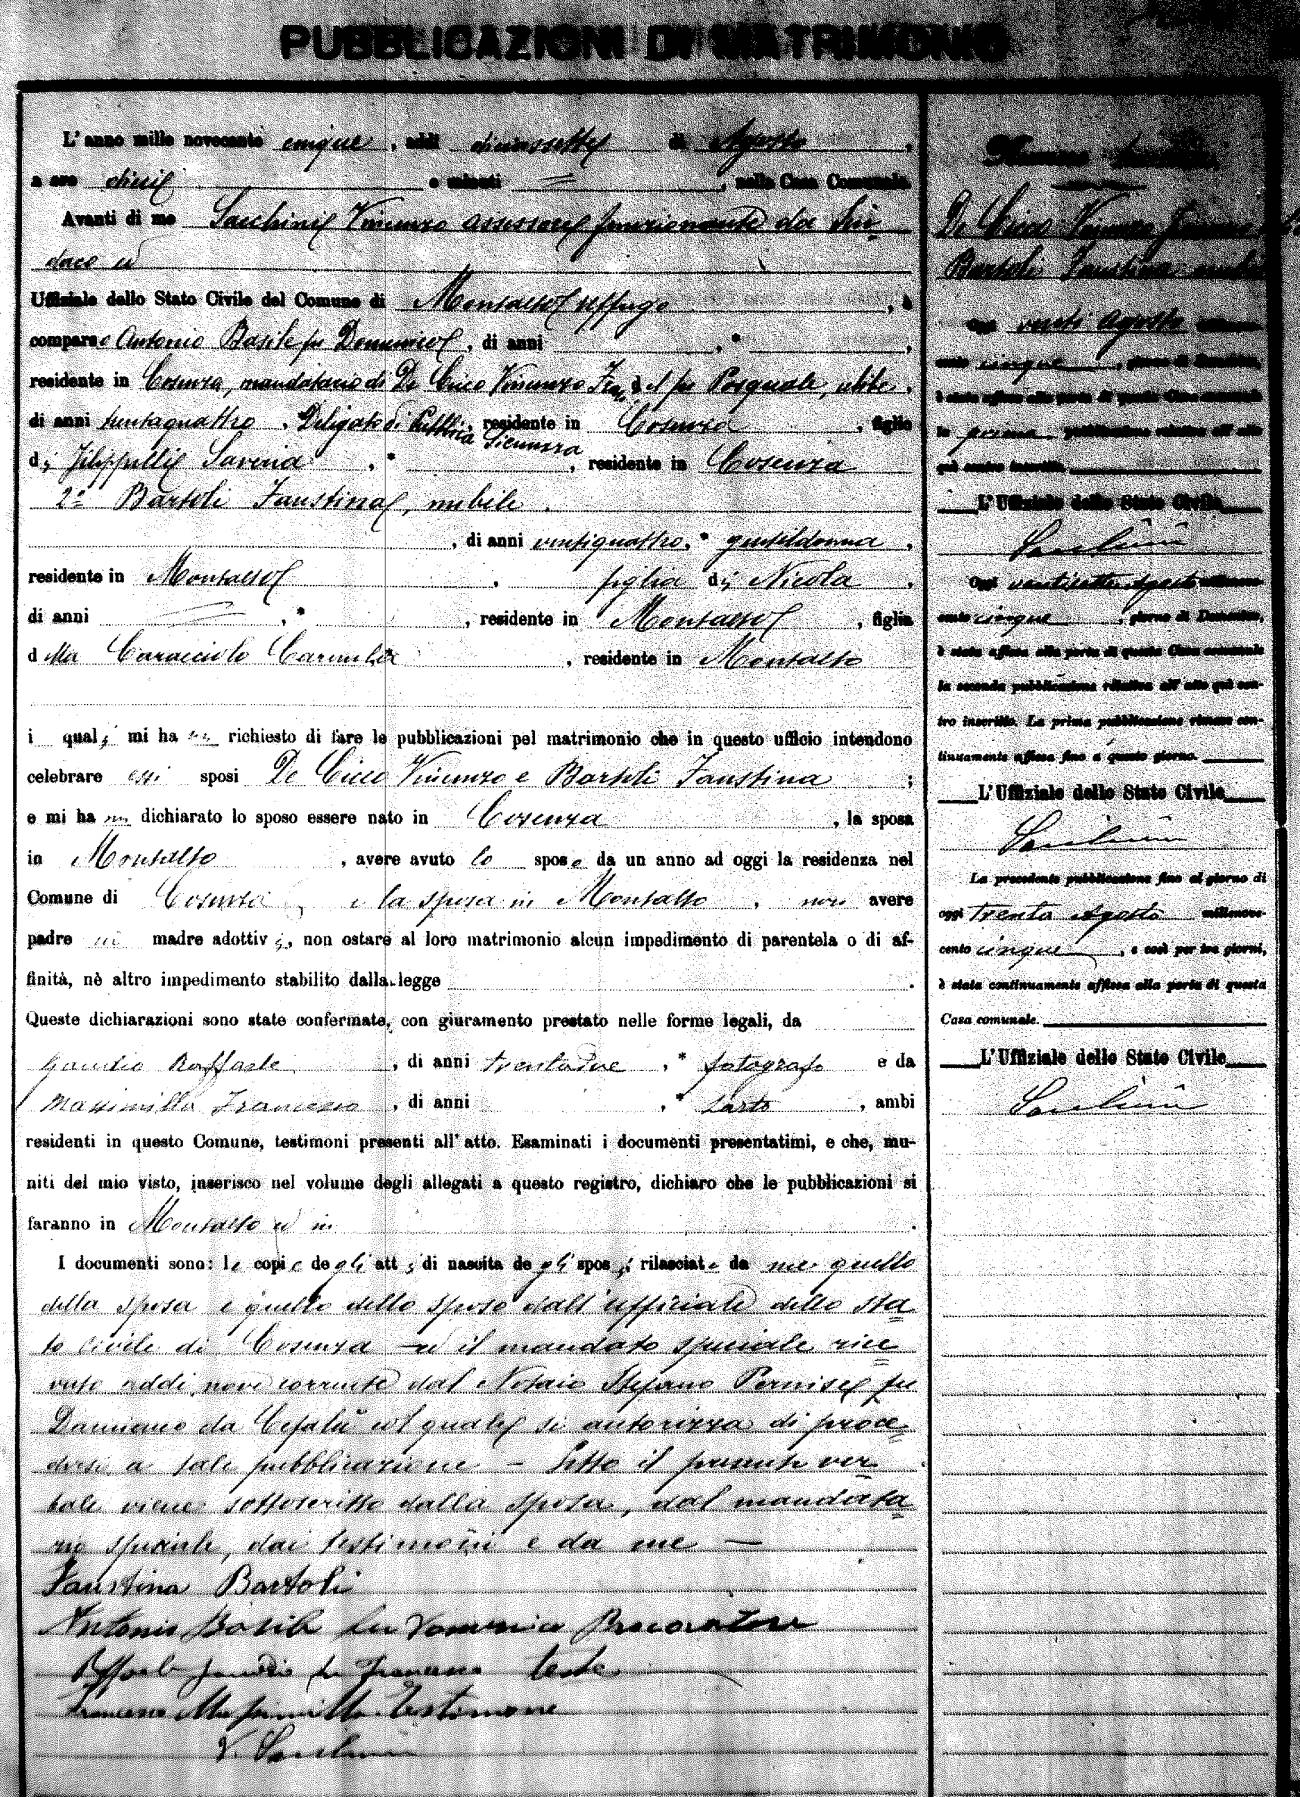 PUBBLICAZIONI DI MATRIMONIO
L'anno mille novecento cinque, addì diciassette di Agosto,
a ore dieci e minuti =, nella Casa Comunale
Avanti di me Sacchini Vincenzo assessore funzionante da Sin-
daco ed
Uffiziale dello Stato Civile del Comune di Montalto Uffugo, è
comparso Antonio Basile fu Domenico, di anni , *
residente in Cosenza, mandatario di De Cicco Vincenzo fu Pasquale, celibe,
di anni trentaquattro, Delegato di Pubblica Sicurezza, residente in Cosenza, figlio
di Filippelli Saveria, * , residente in Cosenza
2º Bartoli Faustina, nubile
, di anni ventiquattro, * gentildonna,
residente in Montalto, figlia di Nicola,
di anni , * , residente in Montalto, figlia
della Caracciolo Carmela, residente in Montalto
i quali mi hanno richiesto di fare le pubblicazioni pel matrimonio che in questo ufficio intendono
celebrare essi sposi De Cicco Vincenzo e Bartoli Faustina ;
e mi hanno dichiarato lo sposo essere nato in Cosenza, la sposa
in Montalto, avere avuto lo sposo da un anno ad oggi la residenza nel
Comune di Cosenza, e la sposa in Montalto, non avere
padre nè madre adottivi, non ostare al loro matrimonio alcun impedimento di parentela o di af-
finità, nè altro impedimento stabilito dalla legge .
Queste dichiarazioni sono state confermate, con giuramento prestato nelle forme legali, da
Gaudio Raffaele, di anni trentadue, * fotografo e da
Massimilla Francesco, di anni , * sarto, ambi
residenti in questo Comune, testimoni presenti all'atto. Esaminati i documenti presentatimi, e che, mu-
niti del mio visto, inserisco nel volume degli allegati a questo registro, dichiaro che le pubblicazioni si
faranno in Montalto ed in .
I documenti sono: le copie degli atti di nascita degli sposi rilasciate da me quello
della sposa e quello dello sposo dall'ufficiale dello sta=
to civile di Cosenza — ed il mandato speciale rice=
vuto addì nove corrente dal Notaio Stefano Pernise fu
Damiano da Cefalù col quale si autorizza di proce=
dersi a tale pubblicazione — Letto il presente ver
bale viene sottoscritto dalla sposa, dal mandata=
rio speciale, dai testimoni e da me —
Faustina Bartoli
Antonio Basile fu Domenico Procuratore
Raffaele Gaudio fu Francesco teste
Francesco Massimilla testimone
V. Sacchini
Numero
De Cicco Vincenzo
Bartoli Faustina nubile
Oggi venti Agosto millenove-
cento cinque, giorno di Domenica,
è stata affissa alla porta di questa Casa comunale
la prima pubblicazione relativa all'atto
quì contro inscritto.
L'Uffiziale dello Stato Civile
Sacchini
Oggi ventisette Agosto millenove-
cento cinque, giorno di Domenica,
è stata affissa alla porta di questa Casa comunale
la seconda pubblicazione relativa all'atto quì con-
tro inscritto. La prima pubblicazione rimase con-
tinuamente affissa fino a questo giorno.
L'Uffiziale dello Stato Civile
Sacchini
La precedente pubblicazione fino al giorno di
oggi trenta Agosto millenove-
cento cinque, e così per tre giorni,
è stata continuamente affissa alla porta di questa
Casa comunale.
L'Uffiziale dello Stato Civile
Sacchini